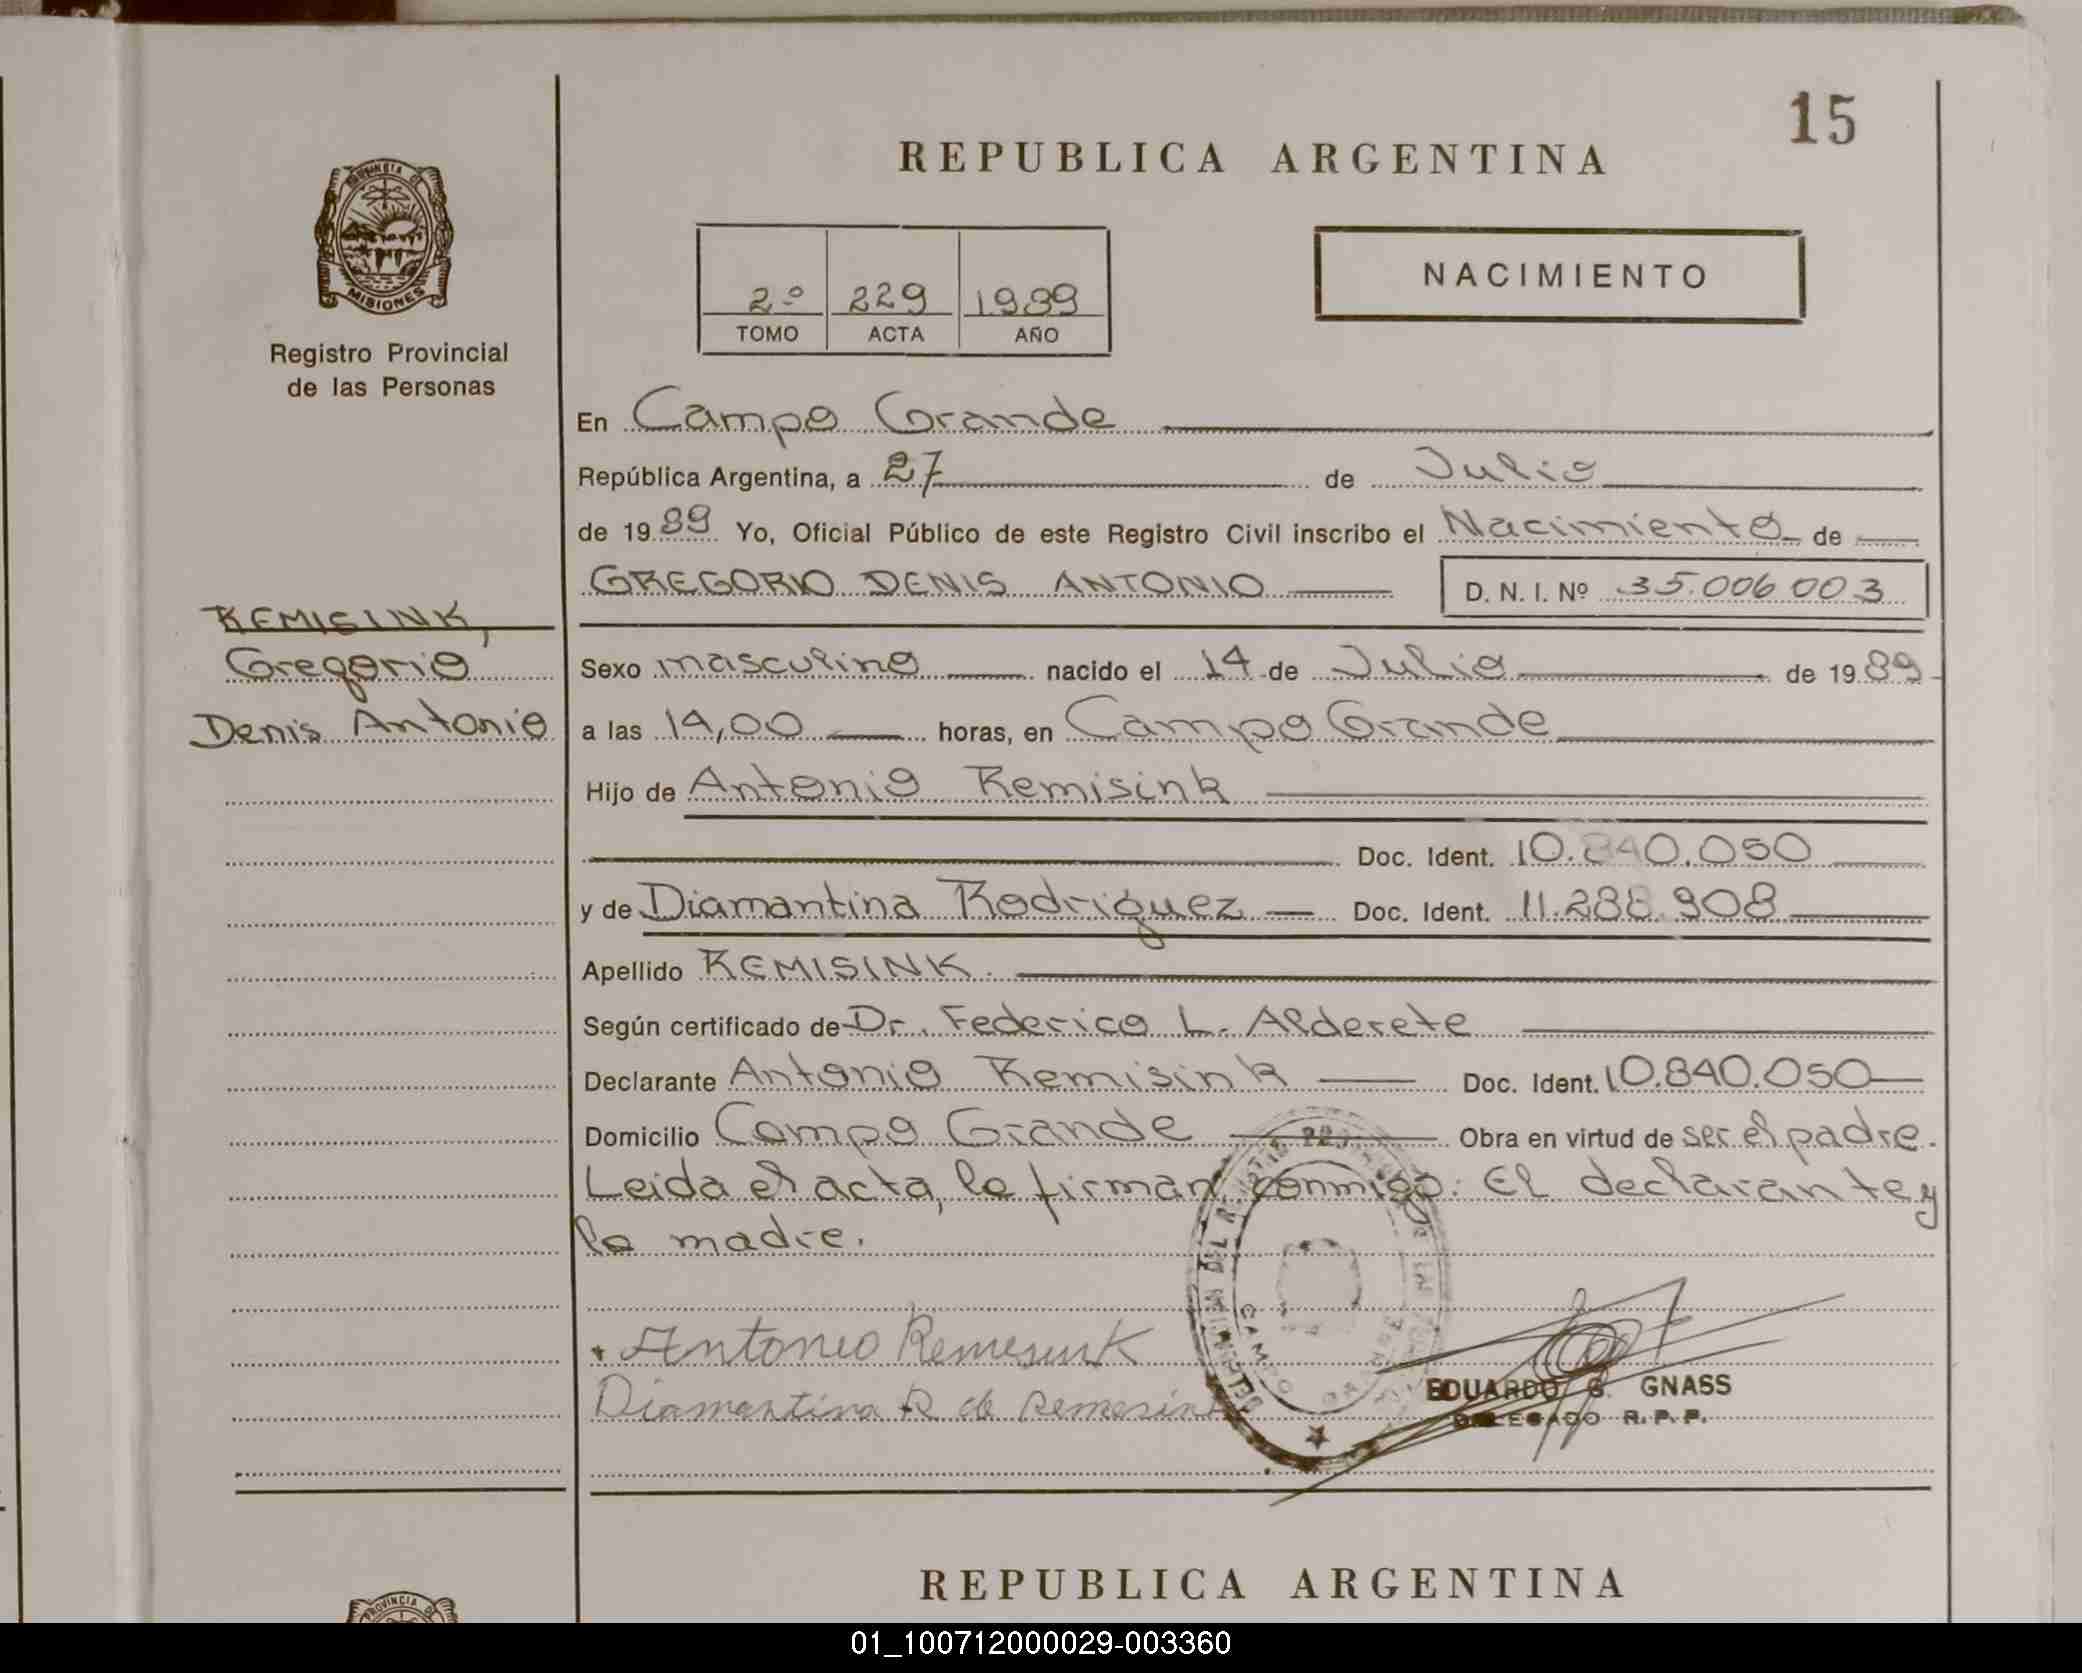 15
REPUBLICA ARGENTINA
PROVINCIA DE
MISIONES
Registro Provincial
de las Personas
2º 229 1989
TOMO ACTA AÑO
NACIMIENTO
En Campo Grande
República Argentina, a 27 de Julio
de 1989 Yo, Oficial Público de este Registro Civil inscribo el Nacimiento de
GREGORIO DENIS ANTONIO D. N. I. Nº 35.006 003
REMISINK,
Gregorio
Denis Antonio
Sexo masculino nacido el 14 de Julio de 1989
a las 14,00 horas, en Campo Grande
Hijo de Antonio Remisink
Doc. Ident. 10.840.050
y de Diamantina Rodriguez Doc. Ident. 11.288.908
Apellido REMISINK.
Según certificado de Dr. Federico L. Alderete
Declarante Antonio Remisink Doc. Ident. 10.840.050
Domicilio Campo Grande Obra en virtud de ser el padre.
Leida el acta, la firman conmigo: El declarante y
la madre.
Antonio Remesink
Diamantina R de Remesink
CAMPO GRANDE
EDUARDO G. GNASS
DELEGADO R.P.P.
REPUBLICA ARGENTINA
PROVINCIA DE
01_100712000029-003360